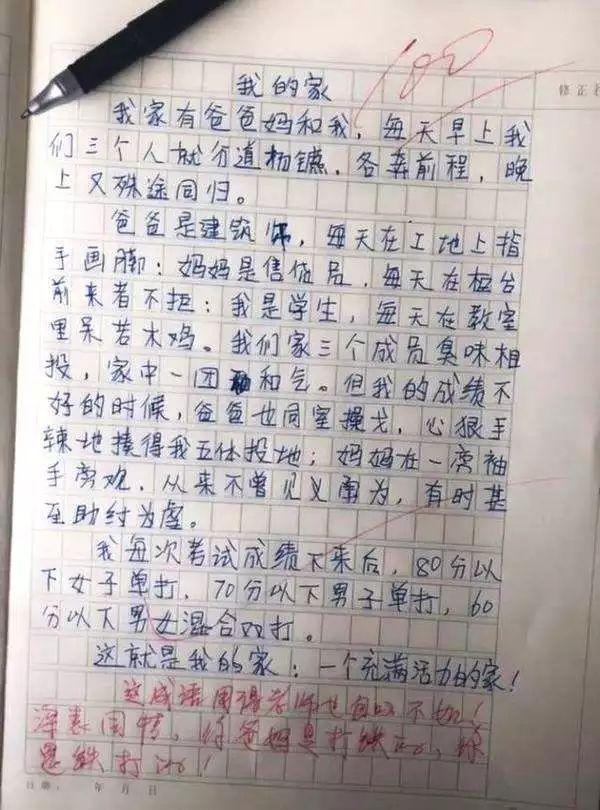 100
我的家
修正
我家有爸爸妈和我，每天早上我
们三个人就分道扬镳，各奔前程，晚
上又殊途同归。
爸爸是建筑师，每天在工地上指
手画脚；妈妈是售货员，每天在柜台
前来者不拒；我是学生，每天在教室
里呆若木鸡。我们家三个成员臭味相
投，家中一团和气。但我的成绩不
好的时候，爸爸也同室操戈，心狠手
辣地揍得我五体投地；妈妈在一旁袖
手旁观，从来不曾见义勇为，有时甚
至助纣为虐。
我每次考试成绩下来后，80分以
下女子单打，70分以下男子单打，60
分以下男女混合双打。
这就是我的家：一个充满活力的家！
这成语用得老师也自叹不如！
深表同情，你爸妈是打铁的，你
是铁打的！
日期： 年 月 日